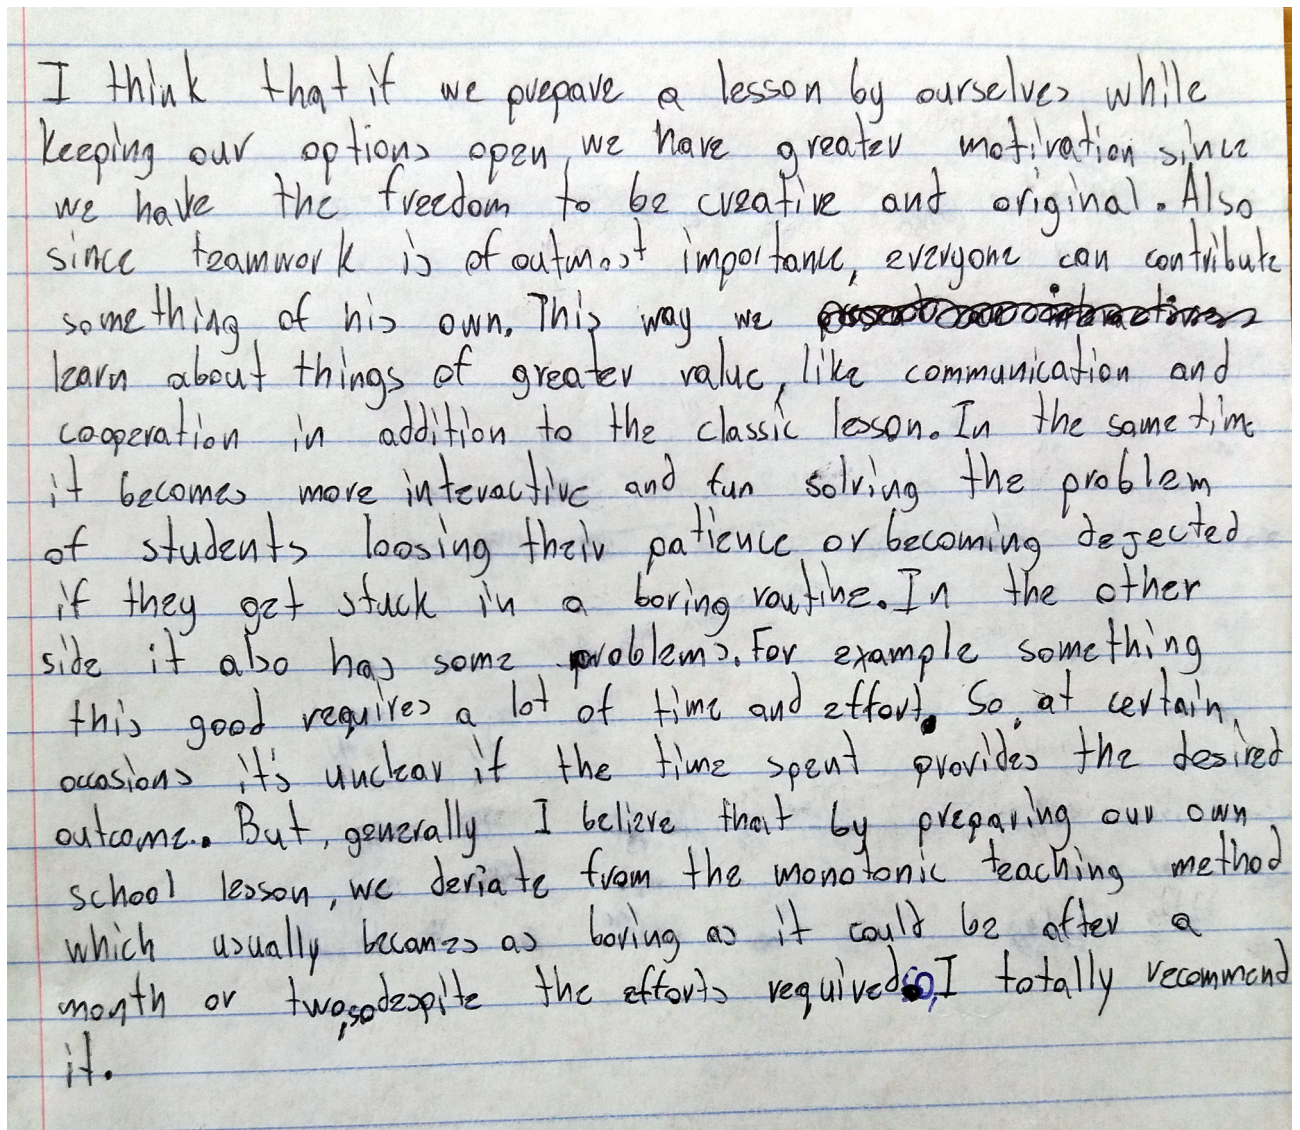 I think that if we prepare a lesson by ourselves while
keeping our options open, we have greater motivation since
we have the freedom to be creative and original. Also
since teamwork is of outmost importance, everyone can contribute
something of his own. This way we
learn about things of greater value, like communication and
cooperation in addition to the classic lesson. In the same time
it becomes more interactive and fun solving the problem
of students loosing their patience or becoming dejected
if they get stuck in a boring routine. In the other
side it also has some problems. For example something
this good requires a lot of time and effort. So, at certain
occasions it's unclear if the time spent provides the desired
outcome. But, generally I believe that by preparing our own
school lesson, we deviate from the monotonic teaching method
which usually becomes as boring as it could be after a
month or two, so despite the efforts required so, I totally recommend
it.